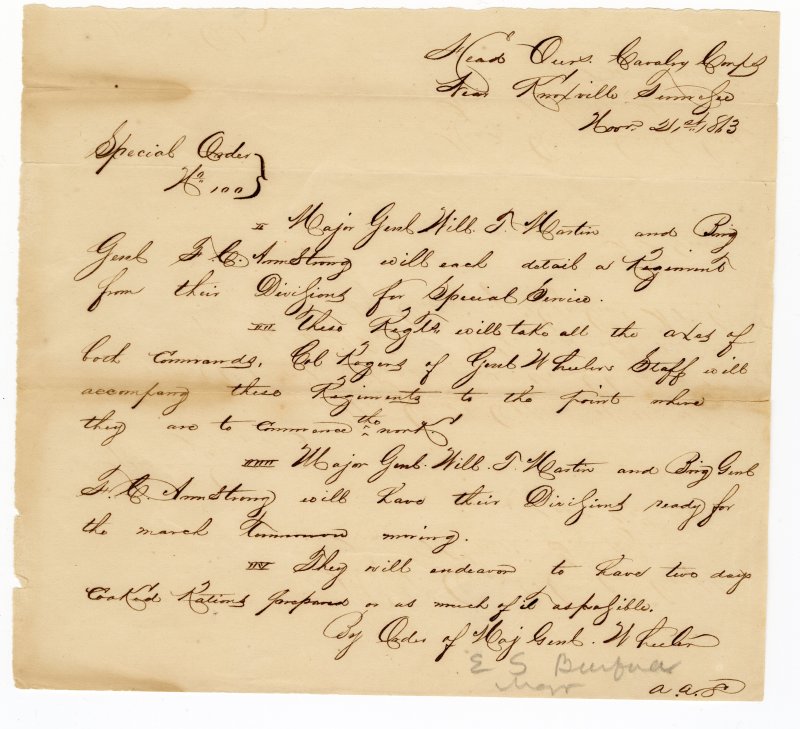 Head Qurs. Cavalry Corps
Near Knoxville Tennessee
Novr. 21st, 1863
Special Order
No. 100
I Major Genl Will. T. Martin and Brig
Genl F. C. Armstrong will each detail a Regiment
from their Divisions for Special Service.
II These Regts. will take all the axes of
both commands. Col Rogers of Genl Wheelers Staff will
accompany these Regiments to the point where
they are to commence the work
III Major Genl. Will. T. Martin and Brig Genl
F. C. Armstrong will have their Divisions ready for
the march tomorrow morning.
IV They will endeavor to have two days
Cooked Rations prepared or as much of it as possible.
By Order of Maj Genl. Wheeler
E S Burford
Major
a. a. G